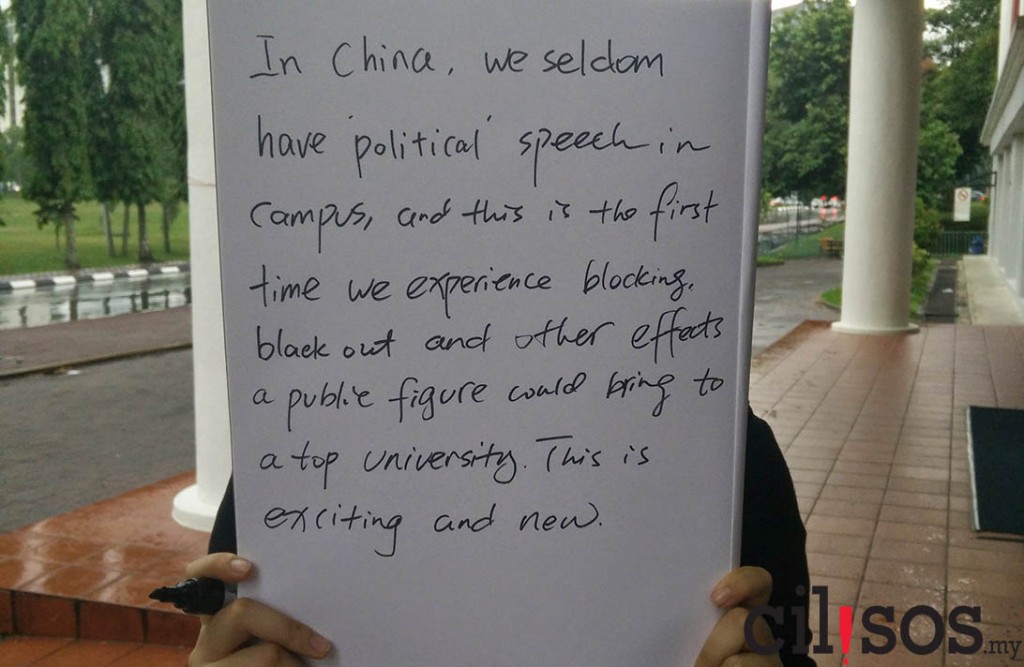 In China, we seldom
have 'political' speech in
campus, and this is the first
time we experience blocking,
black out and other effects
a public figure could bring to
a top university. This is
exciting and new.
cil!sos.my